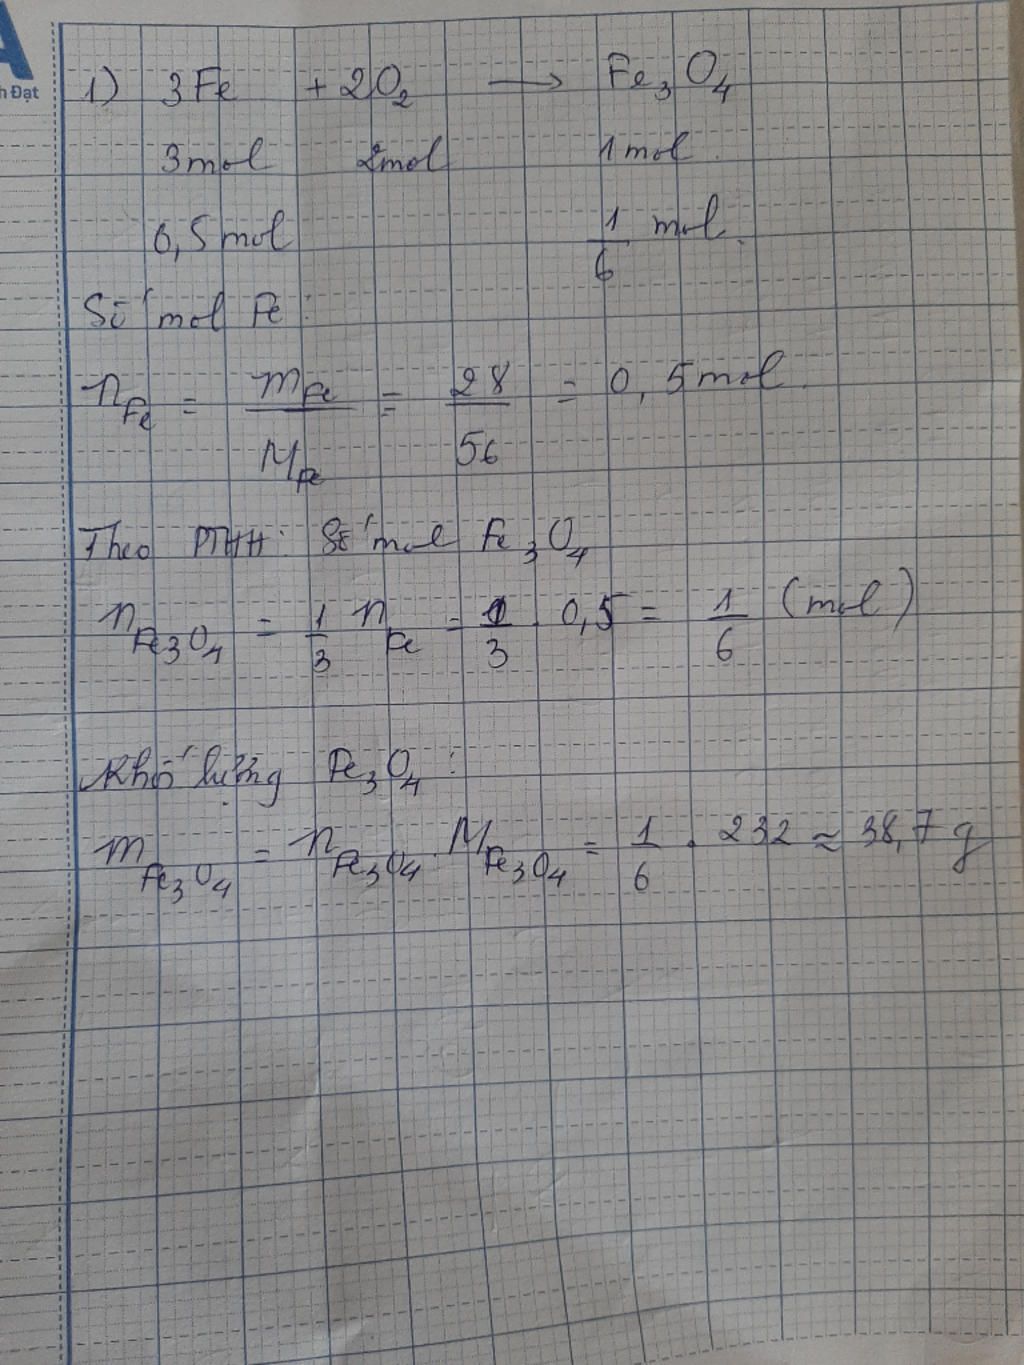 A
h Đạt
1) 3Fe + 2O₂ → Fe₃O₄
3mol 2mol 1mol.
0,5mol 1/6 mol.
Số mol Fe:
n_Fe = m_Fe/M_Fe = 28/56 = 0,5mol.
Theo PTHH: Số mol Fe₃O₄
n_Fe₃O₄ = 1/3 n_Fe = 1/3 . 0,5 = 1/6 (mol)
Khối lượng Fe₃O₄:
m_Fe₃O₄ = n_Fe₃O₄ . M_Fe₃O₄ = 1/6 . 232 ≈ 38,7g